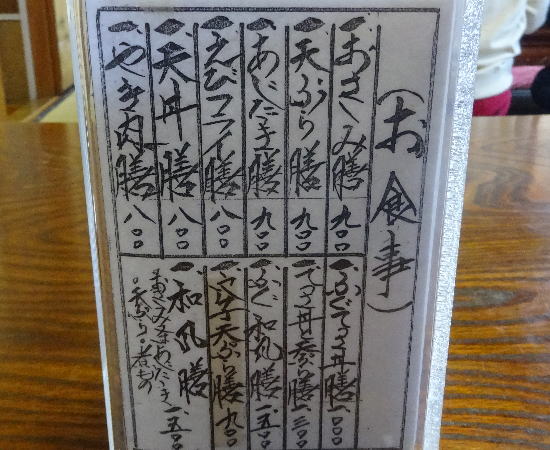 (お食事)
一、おさしみ膳 九〇〇
一、天ぷら膳 九〇〇
一、あじたたき膳 九〇〇
一、えびフライ膳 八〇〇
一、天丼膳 八〇〇
一、やき肉膳 八〇〇
一、ふぐてっさ丼膳 一、八〇〇
一、てっさ丼天ぷら膳 一、三〇〇
一、ふぐ和風膳 一、五〇〇
天ぷら膳 九〇〇
一、和風膳 一、五〇〇
おさしみ
・天ぷら・煮もの